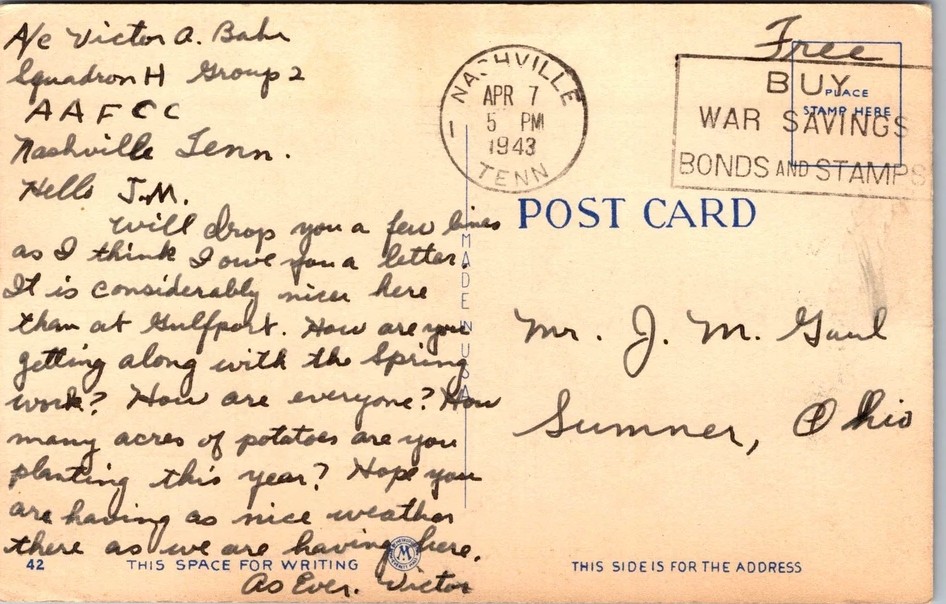 A/c Victor A. Bahr
Squadron H Group 2
A A F C C
Nashville Tenn.
Hello J.M.
Will drop you a few lines
as I think I owe you a letter.
It is considerably nicer here
than at Gulfport. How are you
getting along with the Spring
work? How are everyone? How
many acres of potatoes are you
planting this year? Hope you
are having as nice weather
there as we are having here.
As Ever. Victor
42
THIS SPACE FOR WRITING
M
MADE IN USA
NASHVILLE
APR 7
5 PM
1943
TENN
1
Free
PLACE
STAMP HERE
BUY
WAR SAVINGS
BONDS AND STAMPS
POST CARD
Mr. J. M. Gaul
Sumner, Ohio
THIS SIDE IS FOR THE ADDRESS